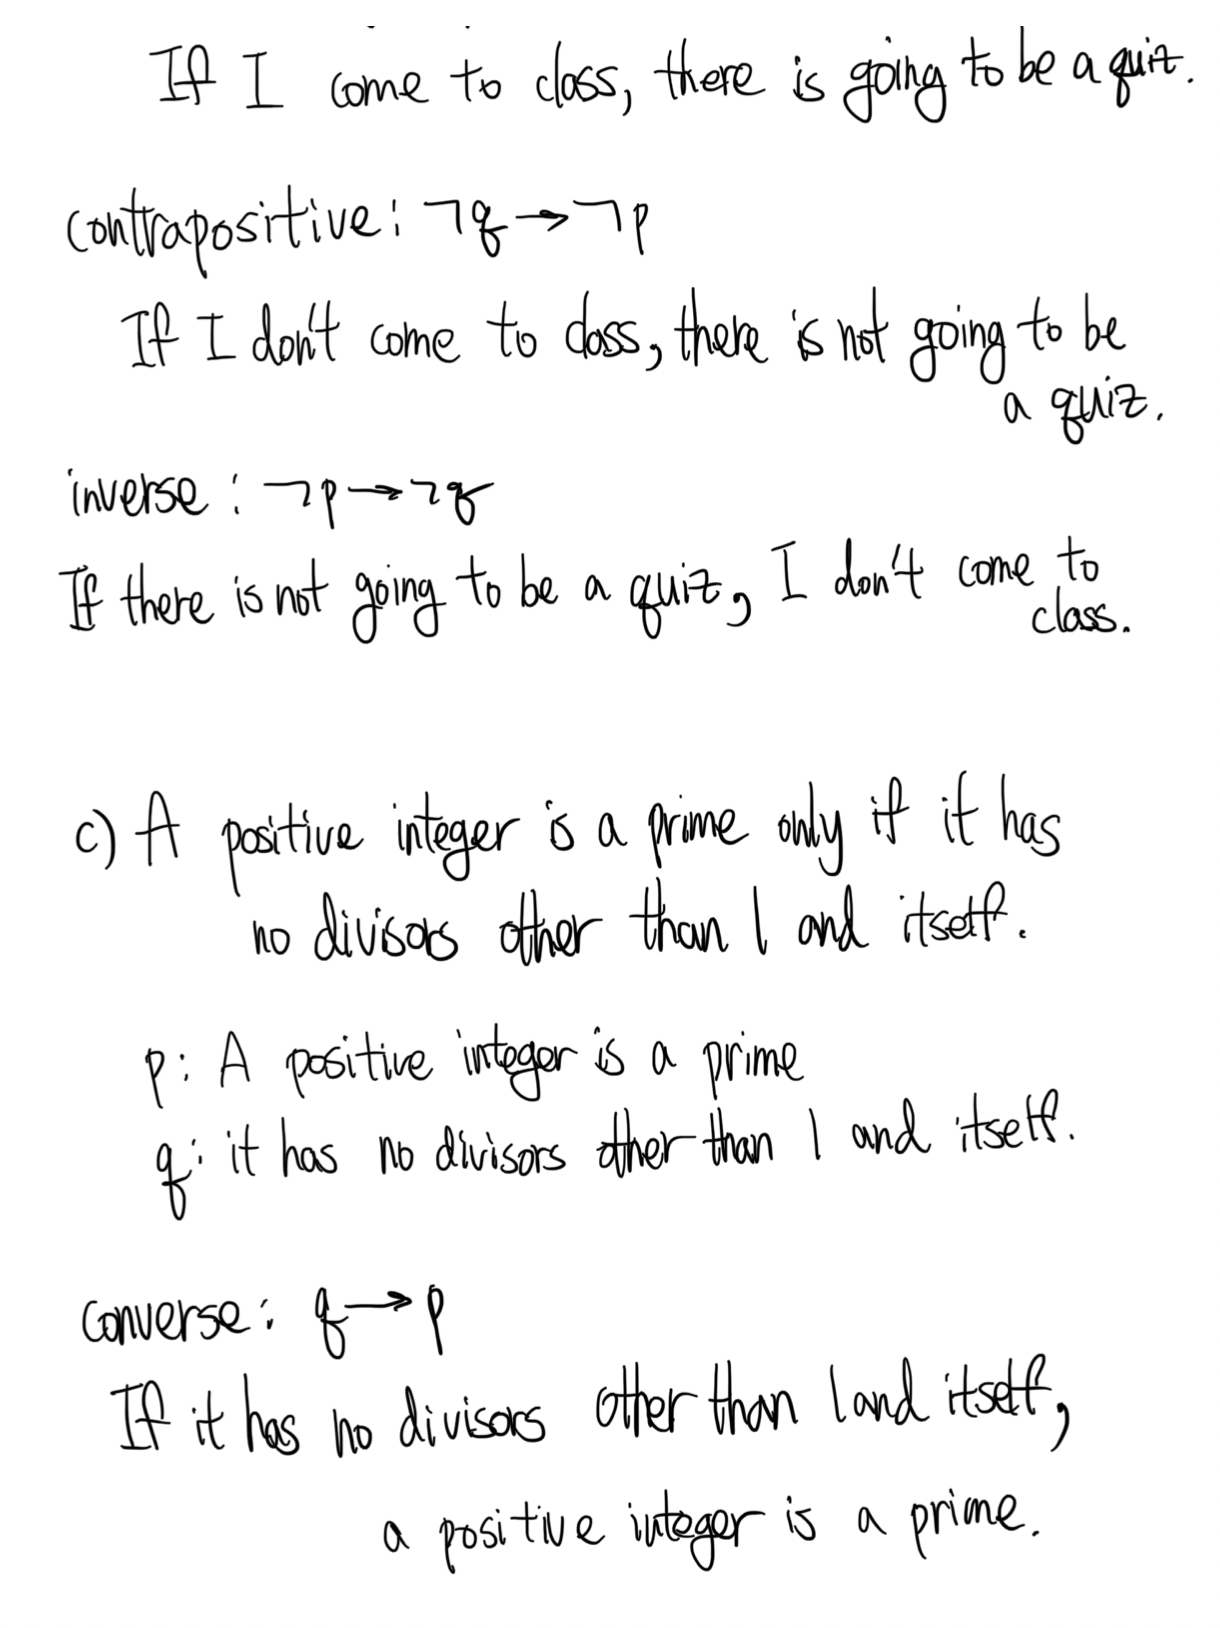 If I come to class, there is going to be a quiz.
contrapositive: ¬q → ¬p
If I don't come to class, there is not going to be
a quiz.
inverse: ¬p → ¬q
If there is not going to be a quiz, I don't come to
class.
c) A positive integer is a prime only if it has
no divisors other than 1 and itself.
p: A positive integer is a prime
q: it has no divisors other than 1 and itself.
converse: q → p
If it has no divisors other than 1 and itself,
a positive integer is a prime.